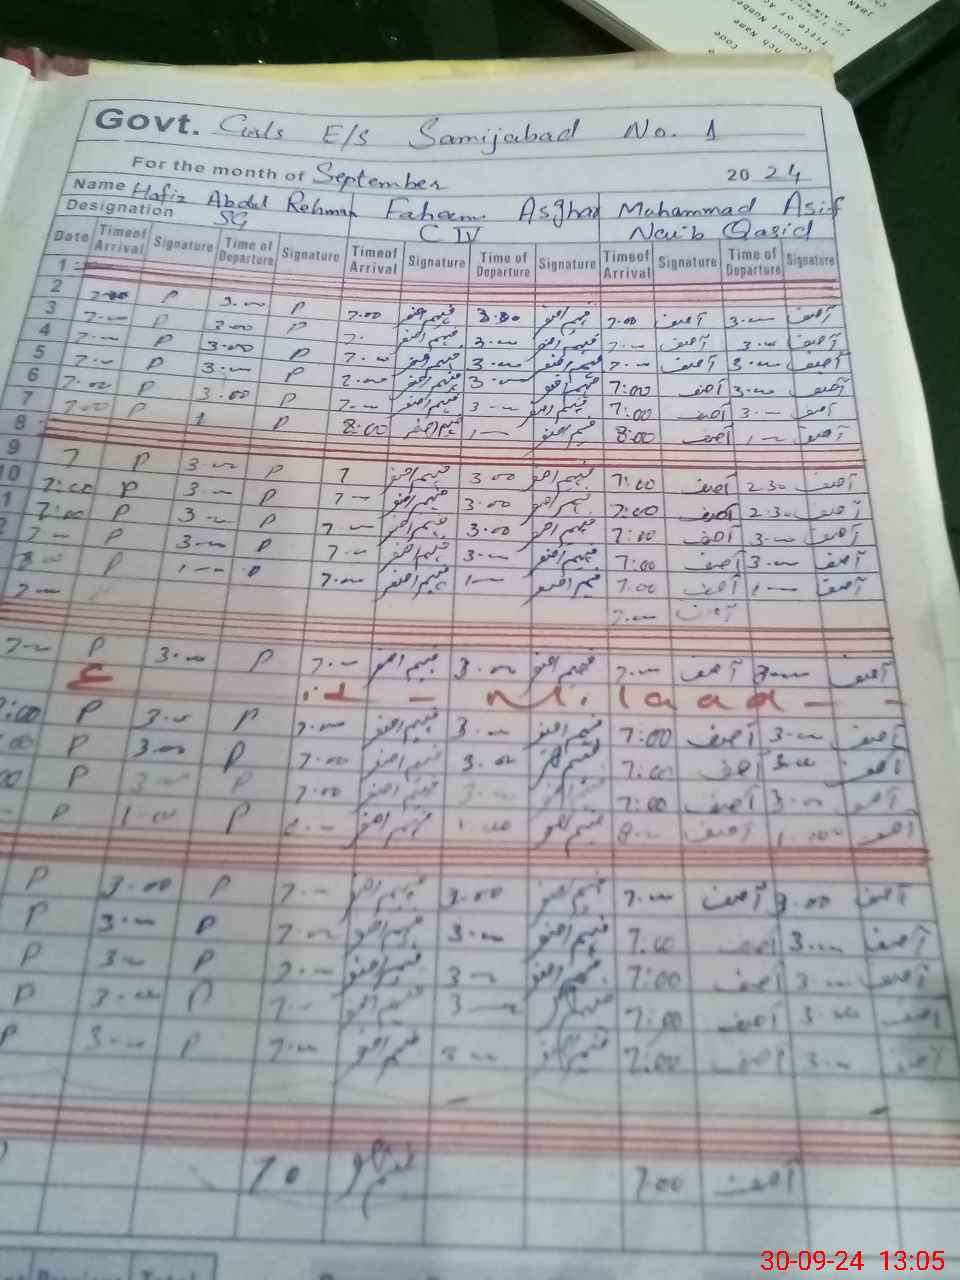 Govt. Girls E/S Samijabad No. 1
For the month of September 2024
Name Hafiz Abdul Rehman Faheem Asghar Muhammad Asif
Designation SG C IV Naib Qasid
Date Time of Arrival Signature Time of Departure Signature Time of Arrival Signature Time of Departure Signature Time of Arrival Signature Time of Departure Signature
1
2 7.00 P 3.00 P 7.00 فہیم اصغر 3.00 فہیم اصغر 7.00 آصف 3.00 آصف
3 7.00 P 3.00 P 7. فہیم اصغر 3.00 فہیم اصغر 7.00 آصف 3.00 آصف
4 7.00 P 3.00 P 7.00 فہیم اصغر 3.00 فہیم اصغر 7.00 آصف 3.00 آصف
5 7.00 P 3.00 P 7.00 فہیم اصغر 3.00 فہیم اصغر 7:00 آصف 3.00 آصف
6 7.00 P 3.00 P 7.00 فہیم اصغر 3.00 فہیم اصغر 7:00 آصف 3.00 آصف
7 7.00 P 1 P 8:00 فہیم اصغر 1.00 فہیم اصغر 8:00 آصف 1.00 آصف
8
9 7 P 3.00 P 7 فہیم اصغر 3.00 فہیم اصغر 7:00 آصف 2.30 آصف
10 7:00 P 3.00 P 7.00 فہیم اصغر 3.00 فہیم اصغر 7:00 آصف 2.30 آصف
1 7:00 P 3.00 P 7.00 فہیم اصغر 3.00 فہیم اصغر 7:00 آصف 3.00 آصف
2 7.00 P 3.00 P 7.00 فہیم اصغر 3.00 فہیم اصغر 7:00 آصف 3.00 آصف
P 1.00 P 7.00 فہیم اصغر 1.00 فہیم اصغر 7.00 آصف 1.00 آصف
7.00 7.00 آصف
7.00 P 3.00 P 7.00 فہیم اصغر 3.00 فہیم اصغر 7.00 آصف 3.00 آصف
E i d - Milaad - -
7:00 P 3.00 P 7.00 فہیم اصغر 3.00 فہیم اصغر 7:00 آصف 3.00 آصف
00 P 3.00 P 7.00 فہیم اصغر 3.00 فہیم اصغر 7:00 آصف 3.00 آصف
00 P 3.00 P 7.00 فہیم اصغر 3.00 فہیم اصغر 7:00 آصف 3.00 آصف
P 1.00 P فہیم اصغر 1.00 فہیم اصغر 8.00 آصف 1.00 آصف
P 3.00 P 7.00 فہیم اصغر 3.00 فہیم اصغر 7.00 آصف 3.00 آصف
P 3.00 P 7.00 فہیم اصغر 3.00 فہیم اصغر 7:00 آصف 3.00 آصف
P 3.00 P 7.00 فہیم اصغر 3.00 فہیم اصغر 7:00 آصف 3.00 آصف
P 3.00 P 7.00 فہیم اصغر 3.00 7:00 آصف 3.00 آصف
P 3.00 P 7.00 فہیم اصغر 3.00 فہیم اصغر 7:00 آصف 3.00 آصف
7.0 فہیم اصغر 7.00 آصف
30-09-24 13:05